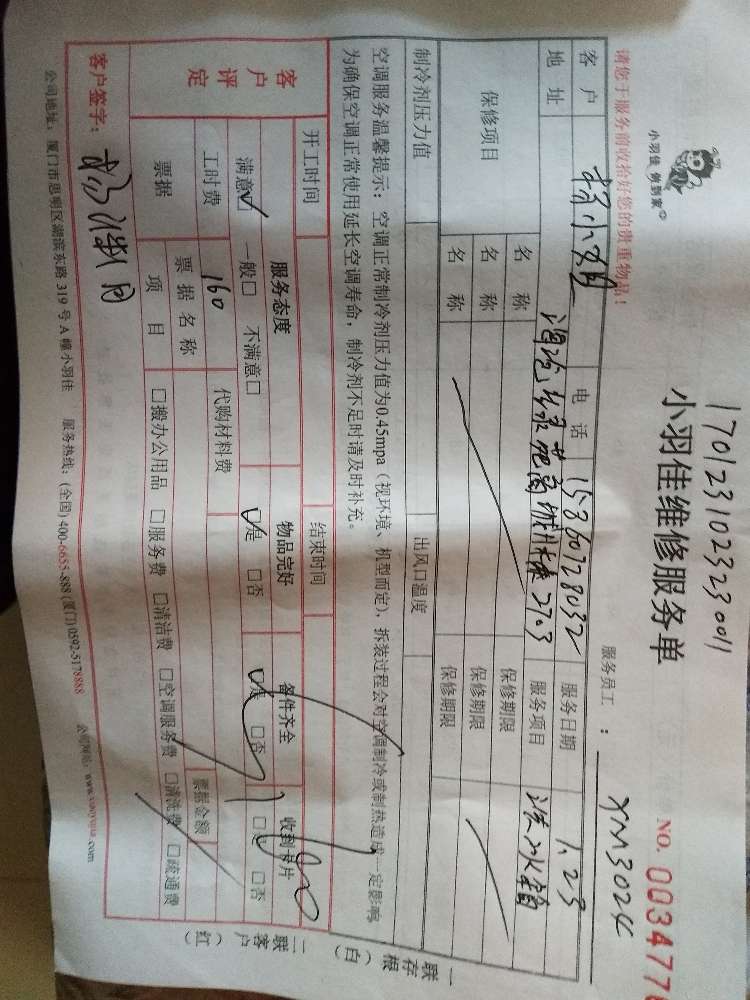 1701231023230011
小羽佳 俯到家
小羽佳维修服务单
NO. 003477
请您于服务前收拾好您的贵重物品！
服务员工： XM3024
客户 杨小姐 电话 15860728032 服务日期 1.23
地址 2703 服务项目 洗冰箱
保修项目 名称 保修期限
名称 保修期限
名称 保修期限
制冷剂压力值 出风口温度
空调服务温馨提示：空调正常制冷剂压力值为0.45mpa（视环境、机型而定），拆装过程会对空调制冷或制热造成一定影响，
为确保空调正常使用延长空调寿命，制冷剂不足时请及时补充。
开工时间 结束时间
客户评定 服务态度 物品完好 备件齐全 收到卡片
满意☑ 一般□ 不满意□ ☑是 □否 ☑是 □否 □是 □否
工时费 160 代购材料费
票据 票据名称 票据金额
项目 □搬办公用品 □服务费 □清洁费 □空调服务费 □清洗费 □疏通费
客户签字：
公司地址：厦门市思明区湖滨东路 319 号 A 幢小羽佳 服务热线：(全国) 400-6655-888 (厦门) 0592-5178888 公司网站：www.xiaoyujia.com
一联存根（白）
二联客户（红）